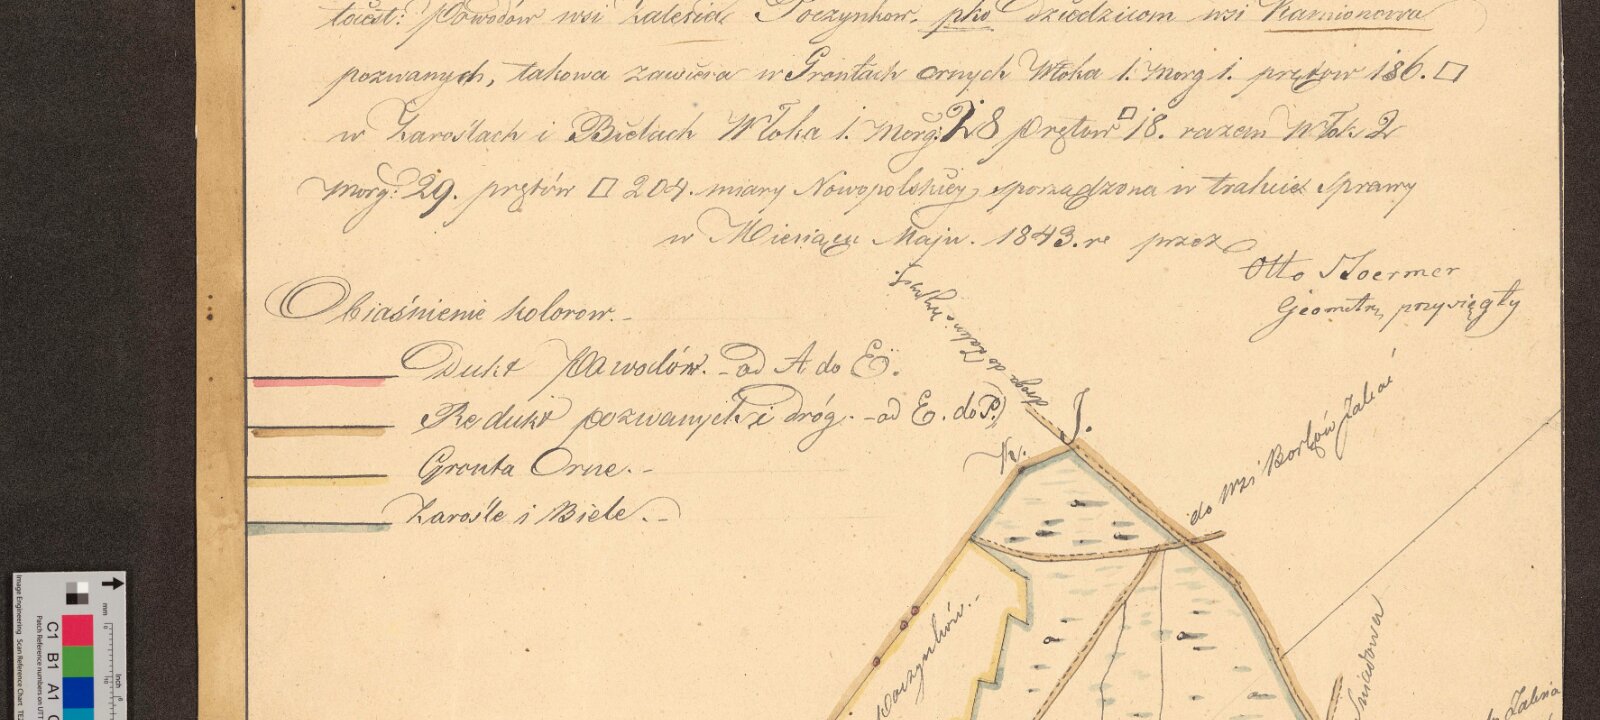 wsi Zalesia Poczynkow. pko Dziedzicom wsi Kamionowa
pozwanych, takowa zawiera w Grontach ornych Włoka 1. Morg 1. prętow 186. □
w Zaroślach i Bielach Włoka 1. Morg: 28 prętow □ 18. razem Włok 2
Morg: 29. prętów □ 204. miary Nowopolskiey, sporządzona w trakcie Sprawy
w Miesiącu Maju. 1843. re przez
Otto Stoermer
Geometra przysięgły
Obiaśnienie kolorow.-
Dukt Powodów. - od A do E.
Redukt pozwanych i dróg. - od E. do P.
Gronta Orne.-
Zarośle i Biele.-
droga do
J.
do Wsi Zalesia
Poczynków.-
Śniadowa
Image Engineering Scan Reference Chart
Patch Reference numbers on UTT
C1 B1 A1
mm
Inch